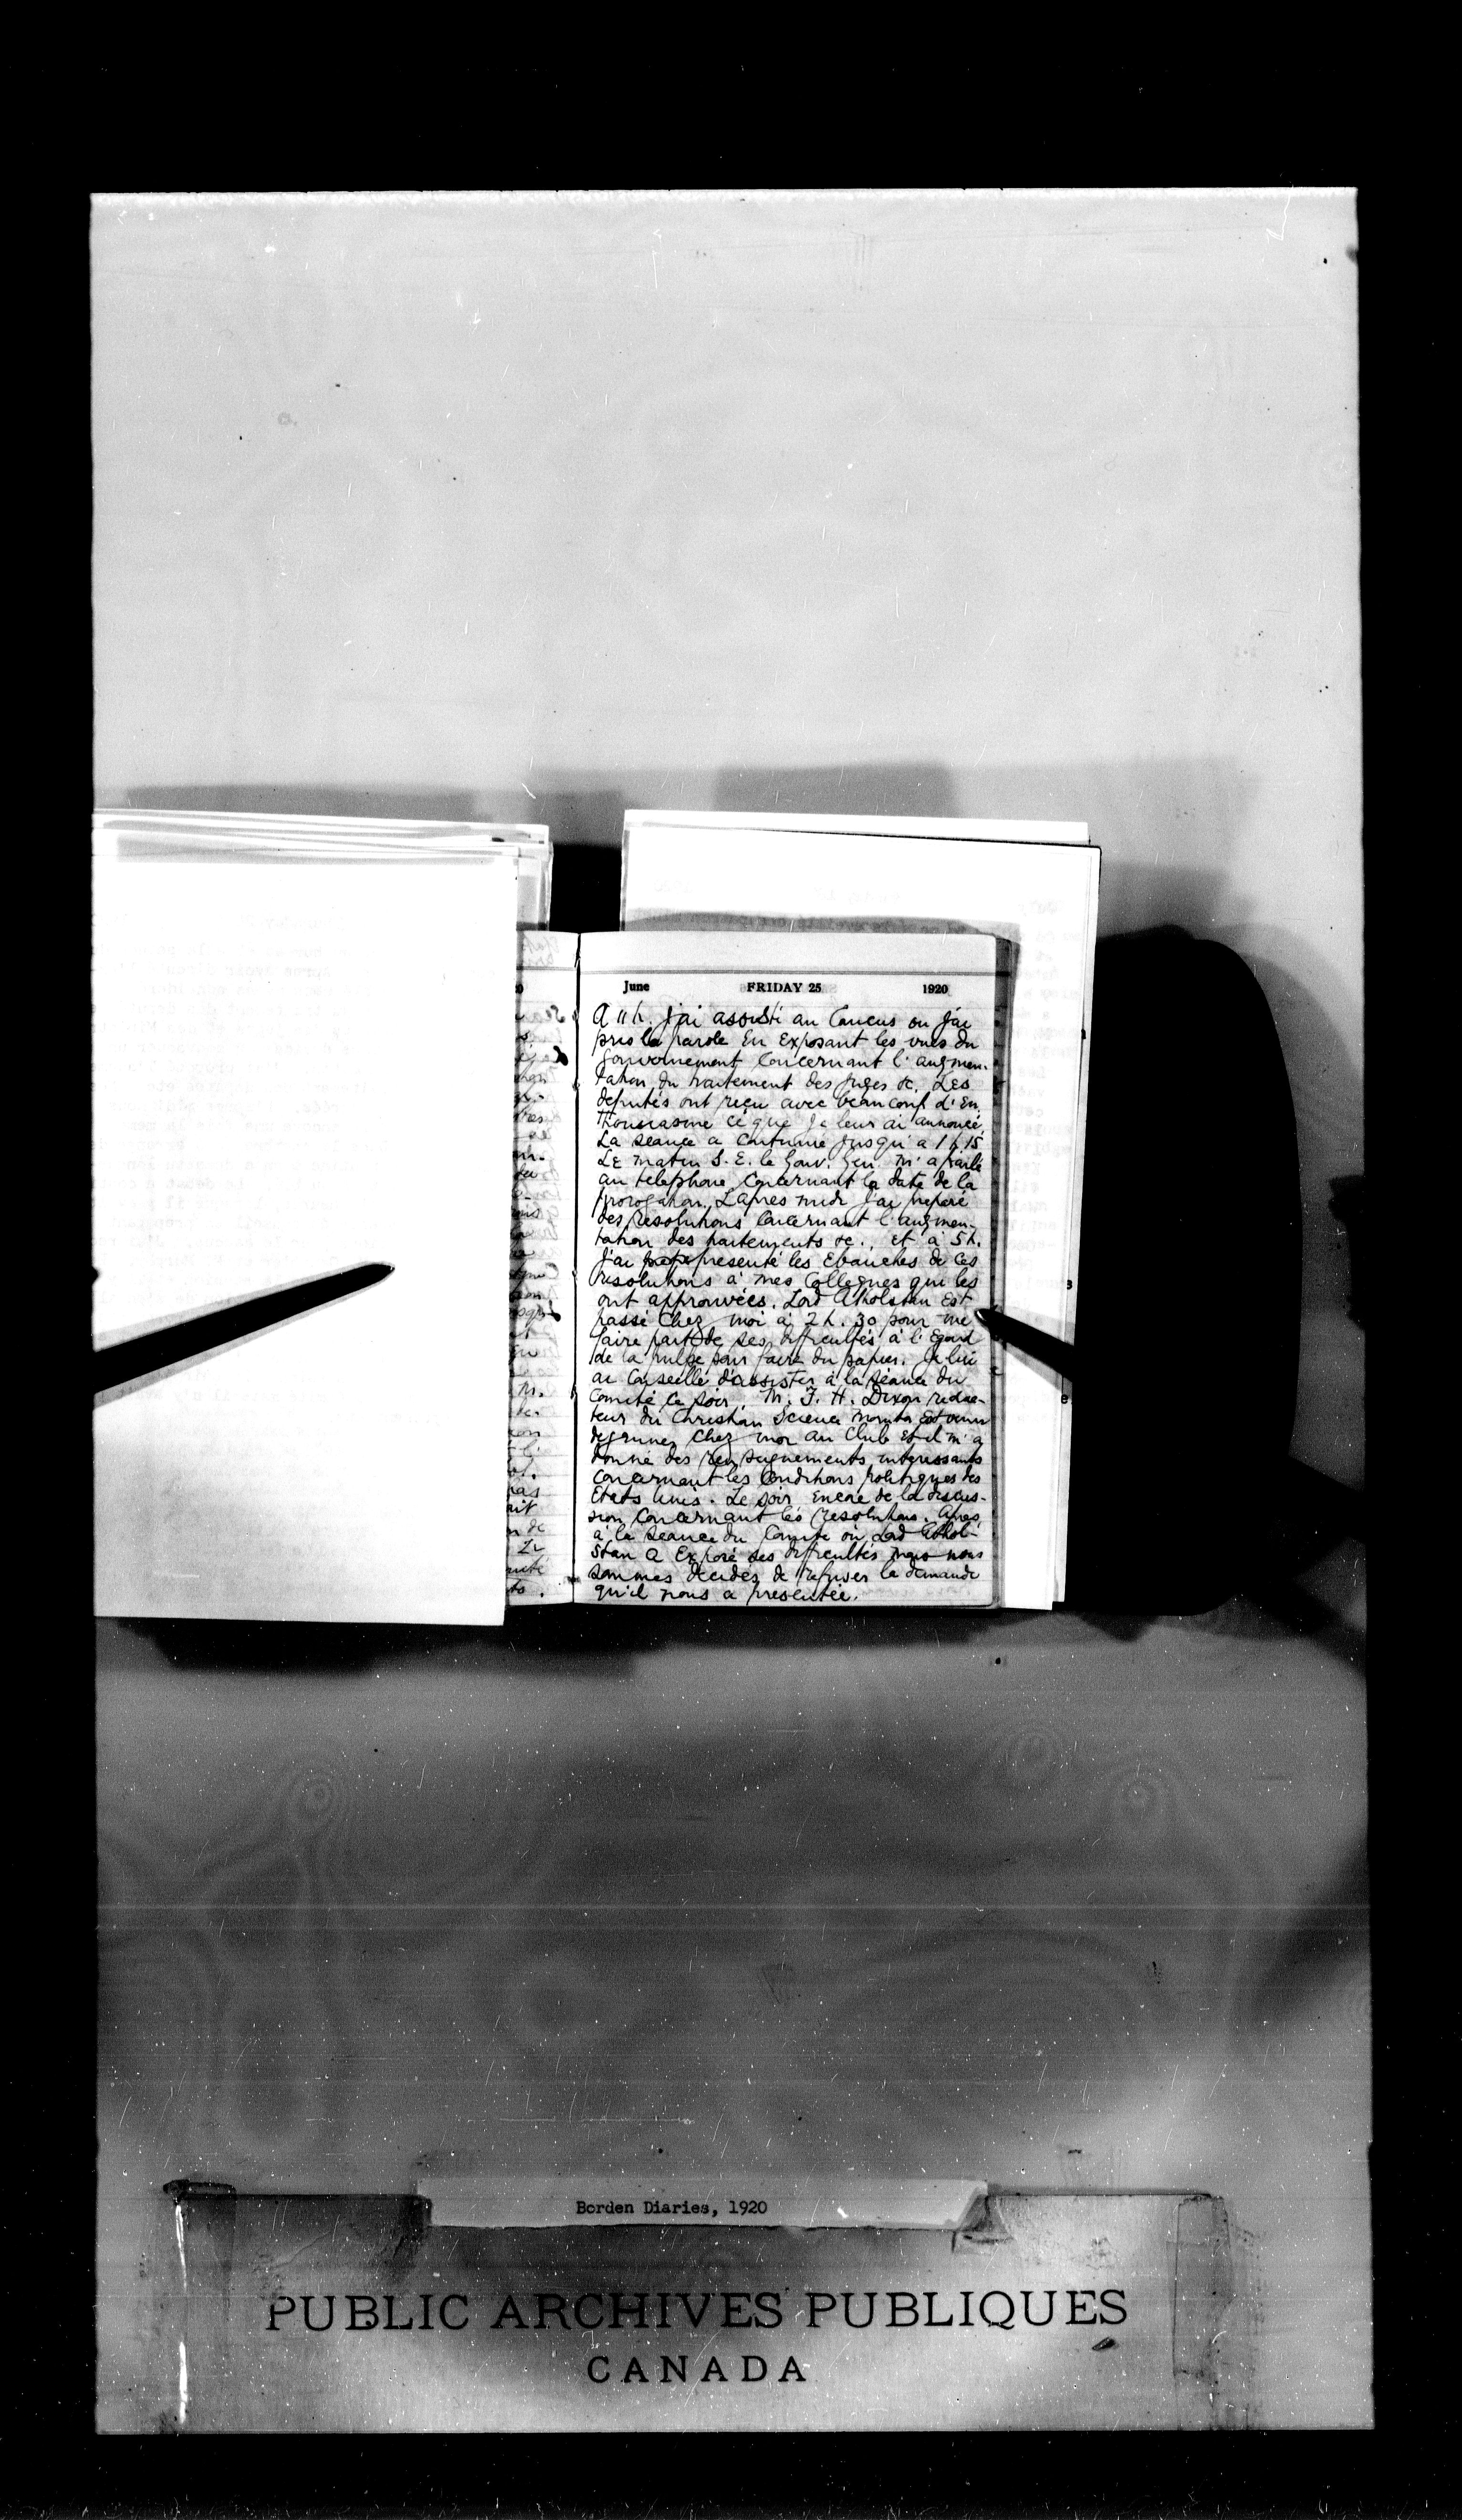 June FRIDAY 25 1920
A 11 h. j'ai assisté au Caucus ou j'ai
pris la parole en exposant les vues du
Gouvernement concernant l'augmen-
tation du traitement des juges &c. Les
deputés ont reçu avec beaucoup d'en
thousiasme ce que je leur ai annoncé.
La seance a continué jusqu'a 1 h 15
Le matin S. E. le Gouv. Gen. m'a parlé
au telephone concernant la date de la
prorogation. L'apres midi j'ai preparé
des resolutions concernant l'augmen-
tation des traitements &c., et à 5 h.
j'ai presenté les ebauches de ces
resolutions à mes Collegues qui les
ont approuvées. Lord Atholstan est
passé chez moi à 2 h. 30 pour me
faire part de ses difficultés à l'egard
de la pulpe pour faire du papier. Je lui
ai conseillé d'assister à la séance du
Comité ce soir. M. F. H. Dixon redac-
teur du Christian Science Monitor est venu
dejeuner chez moi au Club et il m'a
donné des renseignements interessants
concernant les conditions politiques des
Etats Unis. Le soir encore de la discus-
sion concernant les resolutions. Apres
à la seance du Comite où Lord Athol-
stan a exposé ses difficultés mais nous
sommes decidés de refuser la demande
qu'il nous a presentée.
Borden Diaries, 1920
PUBLIC ARCHIVES PUBLIQUES
CANADA